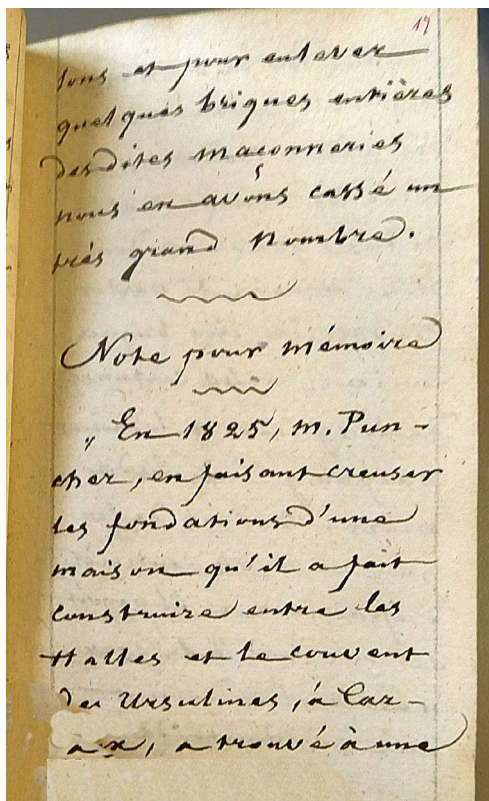 19
tons et pour enlever
quelques briques entières
desdites maçonneries
nous en avons cassé un
très grand nombre.
Note pour mémoire
„ En 1825, M. Pun-
cher, en faisant creuser
les fondations d'une
maison qu'il a fait
construire entre les
Halles et le couvent
des Ursulines, à Car-
a x, a trouvé à une